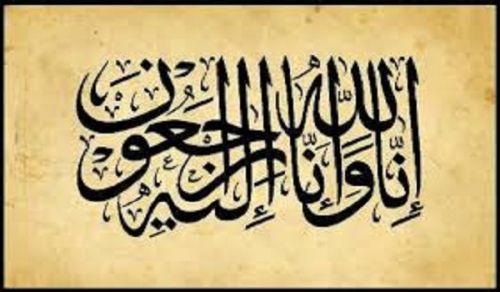 إِنَّا لله وَإِنَّا إِلَيْهِ رَاجِعُونَ